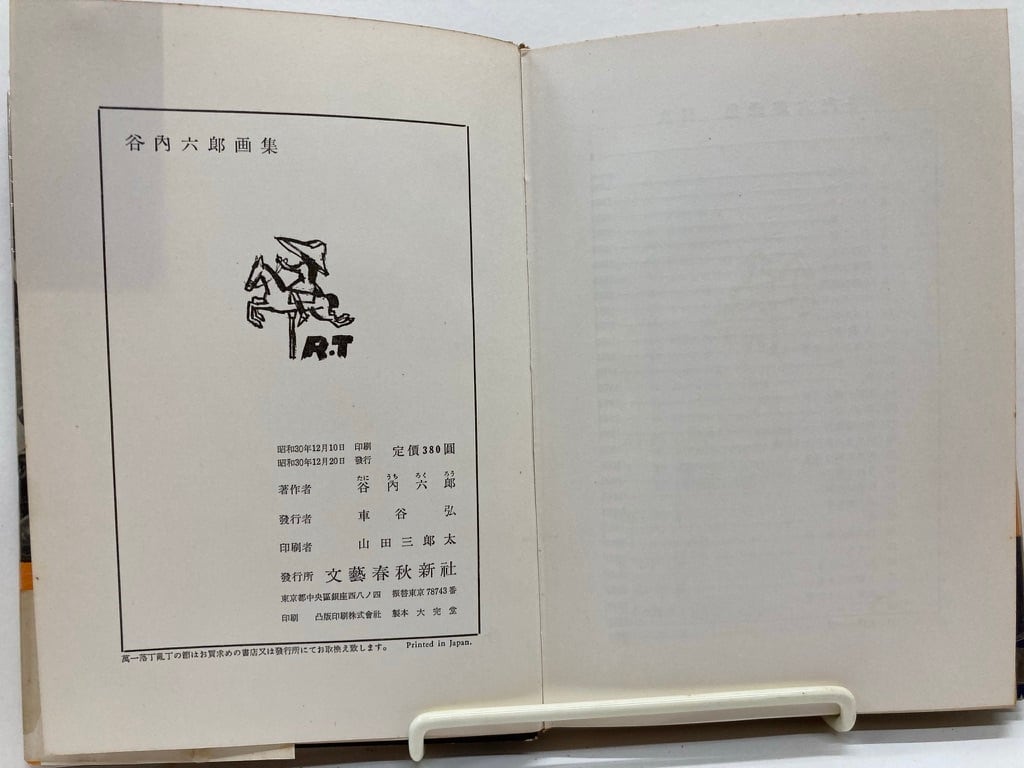 谷內六郎画集
R.T
昭和30年12月10日 印刷
昭和30年12月20日 發行
定價380圓
たに うち ろく ろう
著作者 谷內六郎
發行者 車谷弘
印刷者 山田三郎太
發行所 文藝春秋新社
東京都中央區銀座西八ノ四 振替東京78743番
印刷 凸版印刷株式會社 製本 大完堂
萬一落丁亂丁の節はお買求めの書店又は發行所にてお取換え致します。 Printed in Japan.